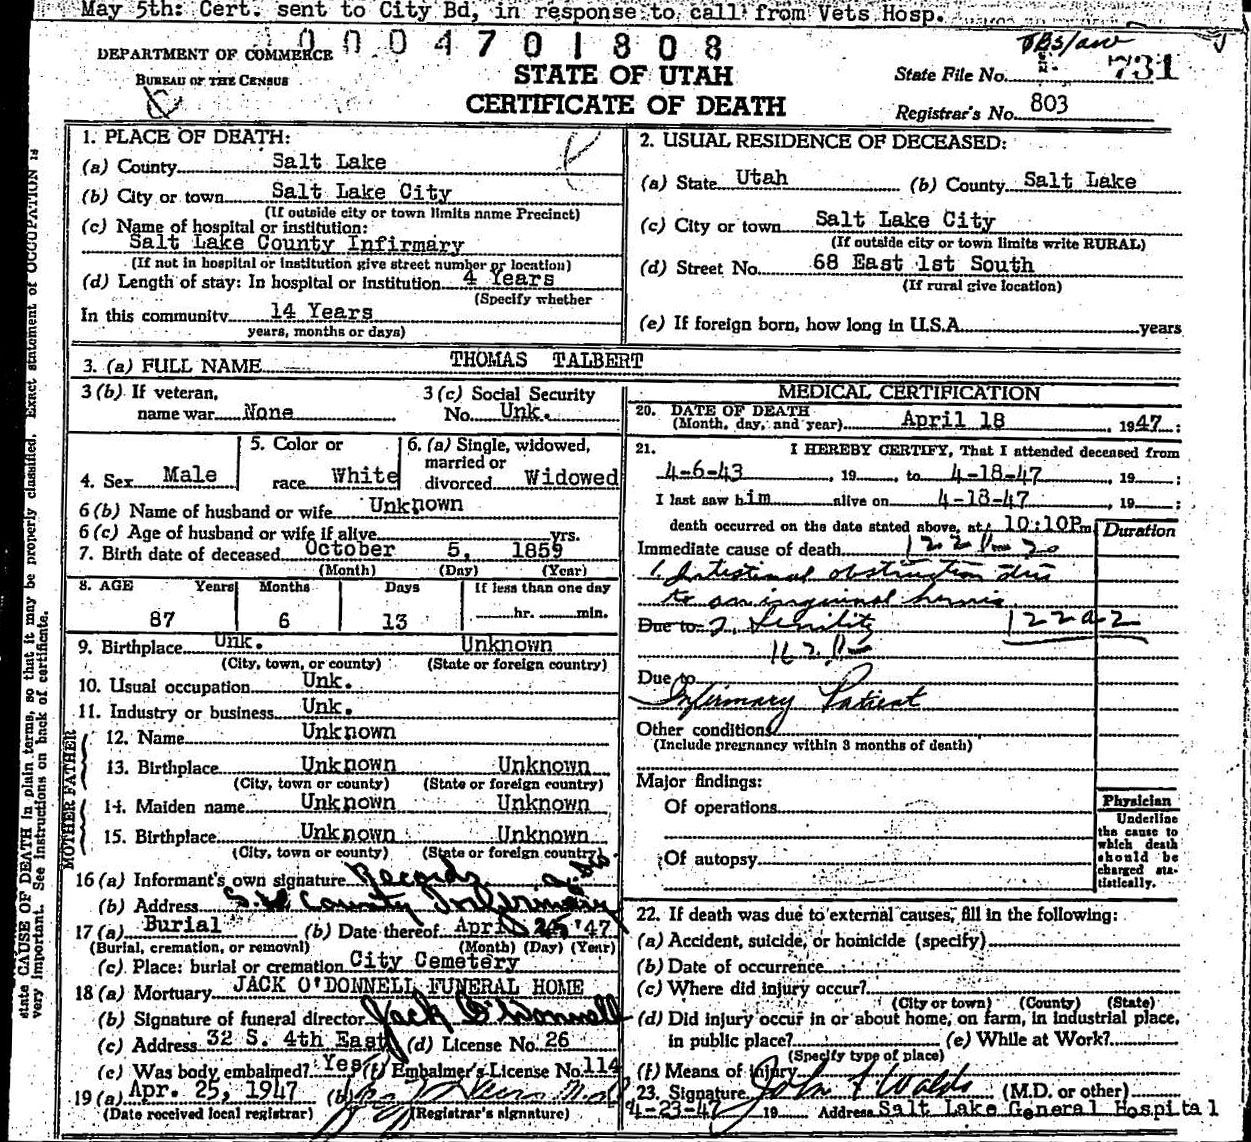 May 5th: Cert. sent to City Bd, in response to call from Vets Hosp.
0004701808
DEPARTMENT OF COMMERCE
BUREAU OF THE CENSUS
STATE OF UTAH
CERTIFICATE OF DEATH
State File No. 731
Registrar's No. 803
1. PLACE OF DEATH:
(a) County Salt Lake
(b) City or town Salt Lake City
(If outside city or town limits name Precinct)
(c) Name of hospital or institution:
Salt Lake County Infirmary
(If not in hospital or institution give street number or location)
(d) Length of stay: In hospital or institution 4 Years
(Specify whether
In this community 14 Years
years, months or days)
2. USUAL RESIDENCE OF DECEASED:
(a) State Utah (b) County Salt Lake
(c) City or town Salt Lake City
(If outside city or town limits write RURAL)
(d) Street No. 68 East 1st South
(If rural give location)
(e) If foreign born, how long in U.S.A. years
3. (a) FULL NAME THOMAS TALBERT
3 (b) If veteran,
name war None
3 (c) Social Security
No. Unk.
4. Sex Male
5. Color or
race White
6. (a) Single, widowed,
married or
divorced Widowed
6 (b) Name of husband or wife Unknown
6 (c) Age of husband or wife if alive yrs.
7. Birth date of deceased October 5, 1859
(Month) (Day) (Year)
8. AGE Years Months Days If less than one day
87 6 13 hr. min.
9. Birthplace Unk. Unknown
(City, town, or county) (State or foreign country)
10. Usual occupation Unk.
11. Industry or business Unk.
FATHER
12. Name Unknown
13. Birthplace Unknown Unknown
(City, town or county) (State or foreign country)
MOTHER
14. Maiden name Unknown Unknown
15. Birthplace Unknown Unknown
(City, town or county) (State or foreign country)
16 (a) Informant's own signature Records
(b) Address S.L. County Infirmary
17 (a) Burial (b) Date thereof Apri 25 '47
(Burial, cremation, or removal) (Month) (Day) (Year)
(c) Place: burial or cremation City Cemetery
18 (a) Mortuary JACK O'DONNELL FUNERAL HOME
(b) Signature of funeral director Jack O'Donnell
(c) Address 32 S. 4th East (d) License No. 26
(e) Was body embalmed? Yes (f) Embalmer's License No. 114
19 (a) Apr. 25, 1947 (b)
(Date received local registrar) (Registrar's signature)
MEDICAL CERTIFICATION
20. DATE OF DEATH
(Month, day, and year) April 18, 1947;
21. I HEREBY CERTIFY, That I attended deceased from
4-6-43, 19 , to 4-18-47, 19 ;
I last saw him alive on 4-18-47, 19 ;
death occurred on the date stated above, at 10:10Pm
Duration
Immediate cause of death
1. Intestinal obstruction due
to an inguinal hernia
Due to 2. Senility 122a2
Due to
Infirmary Patient
Other conditions
(Include pregnancy within 3 months of death)
Major findings:
Of operations
Of autopsy
Physician
Underline
the cause to
which death
should be
charged sta-
tistically.
22. If death was due to external causes, fill in the following:
(a) Accident, suicide, or homicide (specify)
(b) Date of occurrence
(c) Where did injury occur?
(City or town) (County) (State)
(d) Did injury occur in or about home, on farm, in industrial place,
in public place? (e) While at Work?
(Specify type of place)
(f) Means of injury
23. Signature John F Waldo (M.D. or other)
4-23-47 19 Address Salt Lake General Hospital
state CAUSE OF DEATH in plain terms, so that it may be properly classified. Exact statement of OCCUPATION is
very important. See instructions on back of certificate.